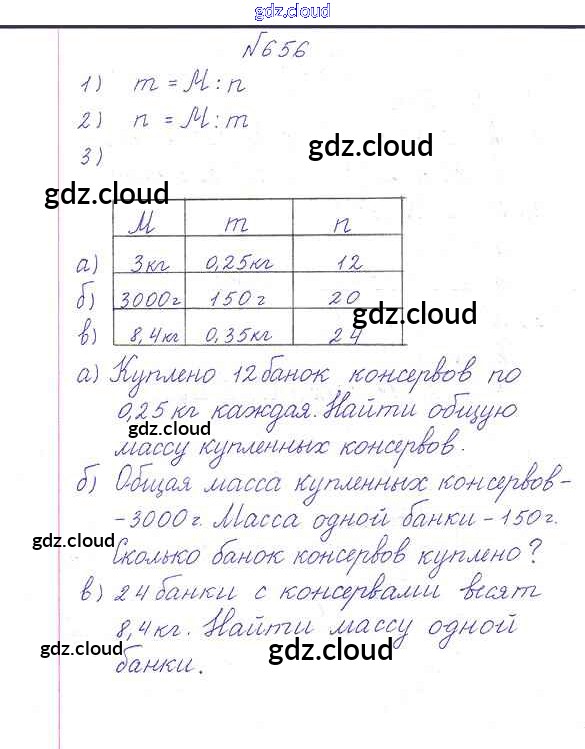 gdz.cloud
№656
1) m = M : n
2) n = M : m
gdz.cloud
3)
gdz.cloud
M m n
а) 3кг 0,25кг 12
б) 3000г 150г 20
gdz.cloud
в) 8,4кг 0,35кг 24
а) Куплено 12 банок консервов по
0,25 кг каждая. Найти общую
gdz.cloud
массу купленных консервов.
б) Общая масса купленных консервов-
-3000г. Масса одной банки - 150г.
gdz.cloud
Сколько банок консервов куплено?
в) 24 банки с консервами весят
8,4кг. Найти массу одной
gdz.cloud
gdz.cloud
банки.